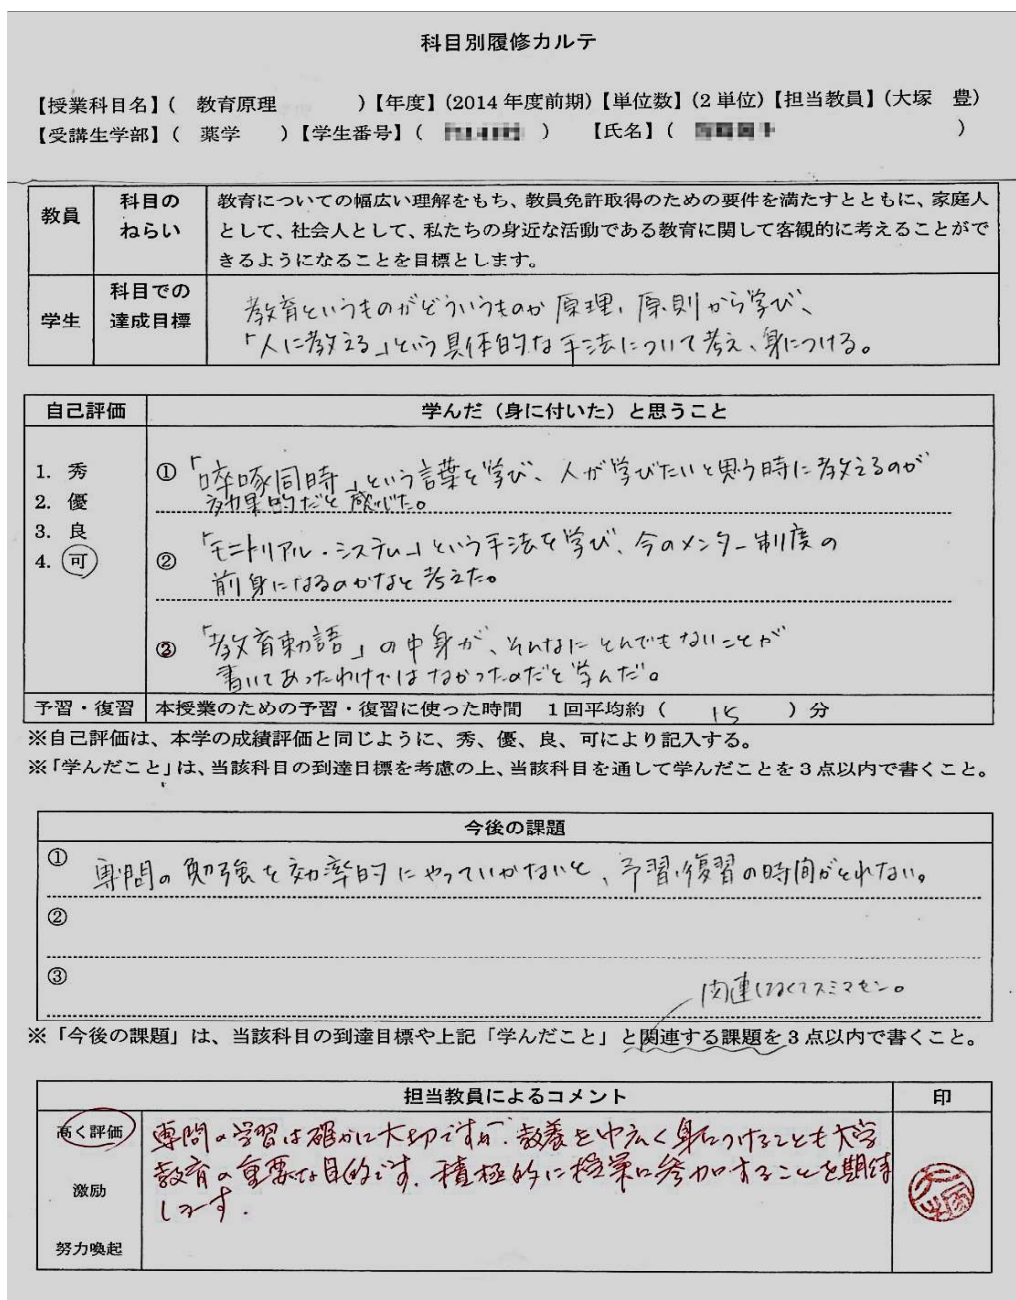 科目別履修カルテ
【授業科目名】( 教育原理 )【年度】(2014 年度前期)【単位数】(2 単位)【担当教員】(大塚 豊)
【受講生学部】( 薬学 )【学生番号】( )【氏名】( )
教員
科目の
ねらい
教育についての幅広い理解をもち、教員免許取得のための要件を満たすとともに、家庭人
として、社会人として、私たちの身近な活動である教育に関して客観的に考えることがで
きるようになることを目標とします。
学生
科目での
達成目標
教育というものがどういうものか原理、原則から学び、
「人に教える」という具体的な手法について考え、身につける。
自己評価
学んだ（身に付いた）と思うこと
1. 秀
2. 優
3. 良
4. 可
① 「啐啄同時」という言葉を学び、人が学びたいと思う時に教えるのが
効果的だと感じた。
② 「モニトリアル・システム」という手法を学び、今のメンター制度の
前身になるのかなと考えた。
③ 「教育勅語」の中身が、そんなにとんでもないことが
書いてあったわけではなかったのだと学んだ。
予習・復習 本授業のための予習・復習に使った時間 1回平均約 ( 15 ) 分
※自己評価は、本学の成績評価と同じように、秀、優、良、可により記入する。
※「学んだこと」は、当該科目の到達目標を考慮の上、当該科目を通して学んだことを3点以内で書くこと。
今後の課題
① 専門の勉強を効率的にやっていかないと、予習、復習の時間がとれない。
②
③
関連してなくてスミマセン。
※「今後の課題」は、当該科目の到達目標や上記「学んだこと」と関連する課題を3点以内で書くこと。
担当教員によるコメント
印
高く評価
激励
努力喚起
専門の学習は確かに大切ですが、教養を巾広く身につけることも大学
教育の重要な目的です。積極的に授業に参加することを期待
します。
大塚